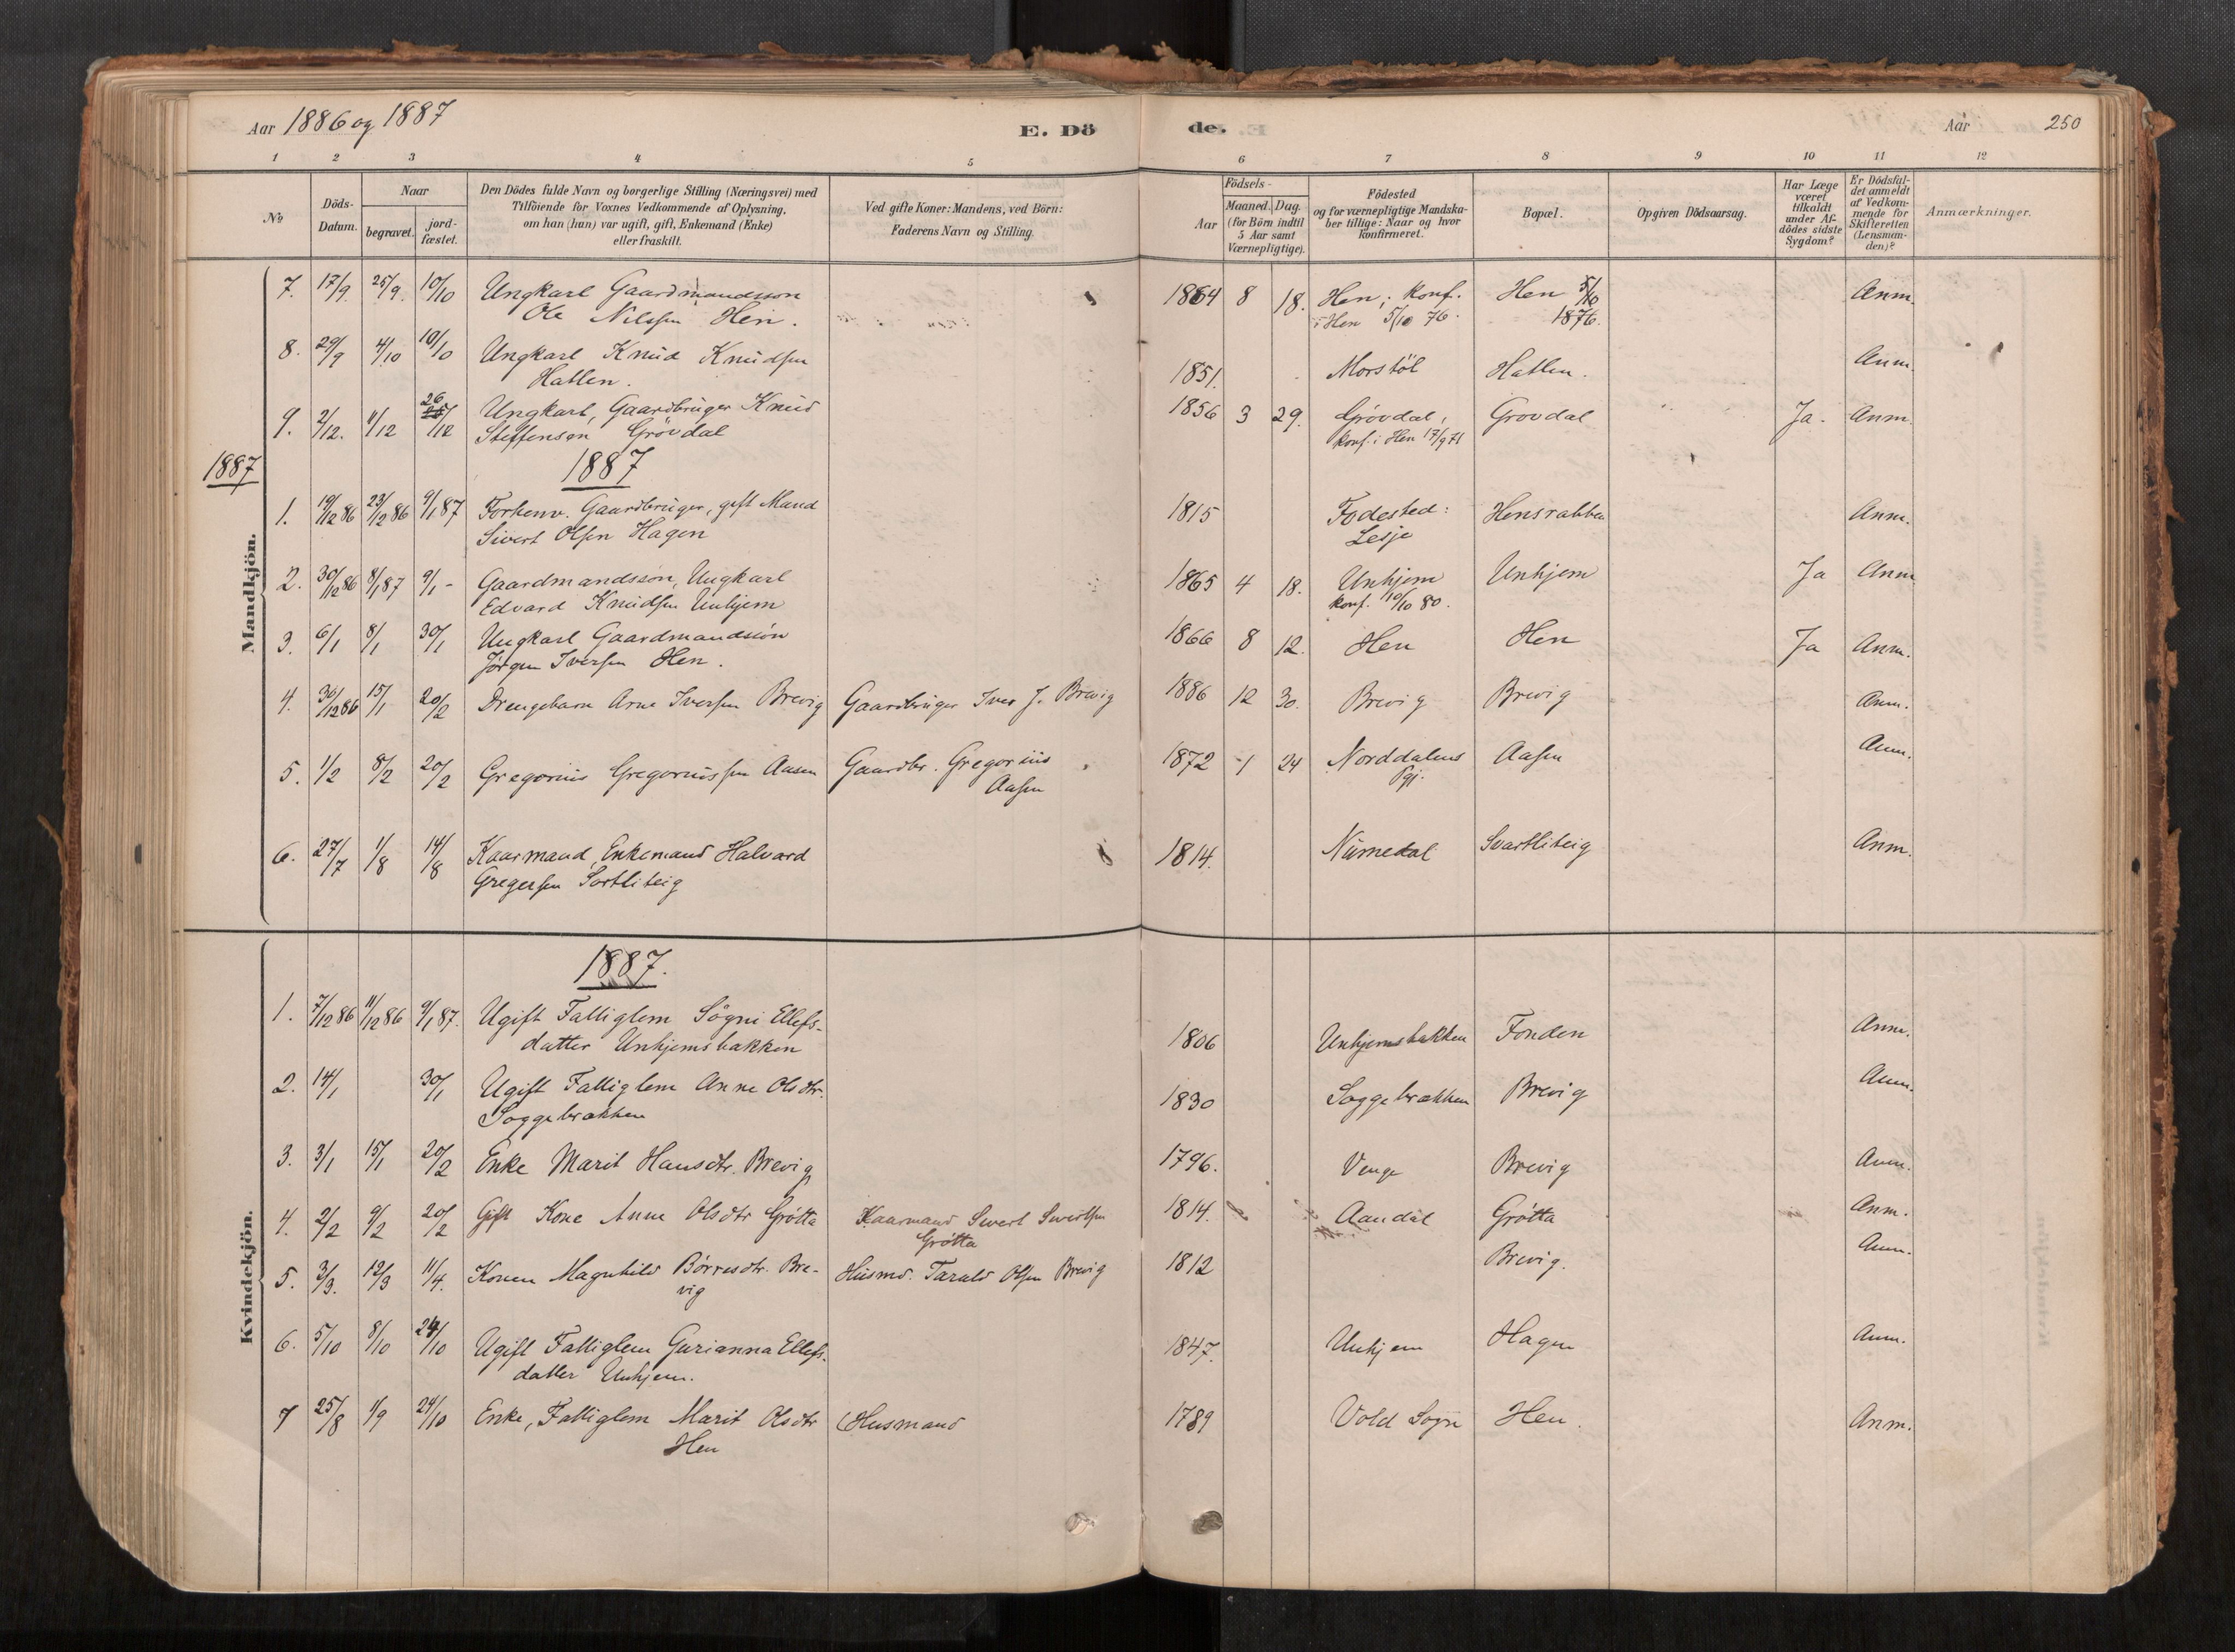 Aar 1886 og 1887
E. Döde.
Aar
250
1 2 3 4 5 6 7 8 9 10 11 12
No
Döds-Datum.
Naar
begravet.
jord-fæstet.
Den Dödes fulde Navn og borgerlige Stilling (Næringsvei) med
Tilföiende for Voxnes Vedkommende af Oplysning,
om han (hun) var ugift, gift, Enkemand (Enke)
eller fraskilt.
Ved gifte Koner: Mandens, ved Börn:
Faderens Navn og Stilling.
Födsels-
Aar
Maaned. Dag.
(for Börn indtil
5 Aar samt
Værnepligtige).
Födested
og for værnepligtige Mandska-
ber tillige: Naar og hvor
konfirmeret.
Bopæl.
Opgiven Dödsaarsag.
Har Læge
været
tilkaldt
under Af-
dödes sidste
Sygdom?
Er Dödsfal-
det anmeldt
af Vedkom-
mende for
Skifteretten
(Lensman-
den)?
Anmærkninger.
Mandkjön.
7. 17/9. 25/9. 10/10 Ungkarl Gaardmandsson 1864 8 18. Hen; konf. Hen 5/10 Anm.
Ole Nilssen Hen. i Hen 5/10 76. 1876.
8. 29/9 4/10 10/10 Ungkarl Knud Knudsen 1851. Morstöl Hatlen. Anm.
Hatlen.
9. 2/12. 11/12 26/12 Ungkarl, Gaardbruger Knud 1856 3 29. Grövdal, Grovdal Ja. Anm.
Steffensøn Grövdal konf. i Hen 17/9 71
1887
1887
1. 19/12 86 23/12 86 9/1 87 Forhenv. Gaardbruger, gift Mand 1815 Fodested: Hensrabben Anm.
Sivert Olsen Hagen Lesje
2. 30/12 86 8/1 87 9/1 - Gaardmandssøn, Ungkarl 1865 4 18. Unhjem Unhjem Ja Anm
Edvard Knudsen Unhjem konf. 10/10 80.
3. 6/1 8/1 30/1 Ungkarl Gaardmandssön 1866 8 12. Hen Hen Ja Anm.
Jörgen Iversen Hen.
4. 30/12 86 15/1 20/2 Drengebarn Arne Iversen Brevig Gaardbruger Iver J. Brevig 1886 12 30. Brevig Brevig Anm.
5. 1/2 8/2 20/2 Gregorius Gregoriussen Aasen Gaardbr. Gregorius 1872 1 24 Norddalens Aasen Anm.
Aasen Pgj.
6. 27/7 1/8 14/8 Kaarmand, Enkemand Halvard 1814. Numedal Svartliteig Anm.
Gregersen Sortliteig
Kvindekjön.
1887.
1. 7/12 86 11/12 86 9/1 87. Ugift Fattiglem Sögni Ellefs- 1806 Unhjemsbakken Fonden Anm.
datter Unhjemsbakken
2. 14/1 30/1 Ugift Fattiglem Anne Olsdtr. 1830 Soggebrækken Brevig Anm.
Soggebrækken
3. 3/1 15/1 20/2 Enke Marit Hansdtr. Brevig 1796. Venge Brevig Anm.
4. 2/2 9/2 20/2 Gift Kone Anne Olsdtr Grötta Kaarmand Sivert Sivertsen 1814. Aandal Grötta Anm.
Grötta
5. 3/3. 12/3 11/4. Konen Magnhild Börresdtr. Bre- Husmd. Tarald Olsen Brevig 1812 Brevig. Anm.
vig
6. 5/10 8/10 24/10 Ugift Fattiglem Gurianna Ellefs- 1847. Unhjem Hagen Anm.
datter Unhjem.
7 25/8 1/9 24/10 Enke, Fattiglem Marit Olsdtr (Husmand 1789 Vold Sogn Hen. Anm.
Hen